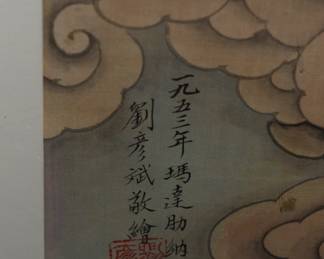 一九五三年瑪達肋納
劉彥斌敬繪